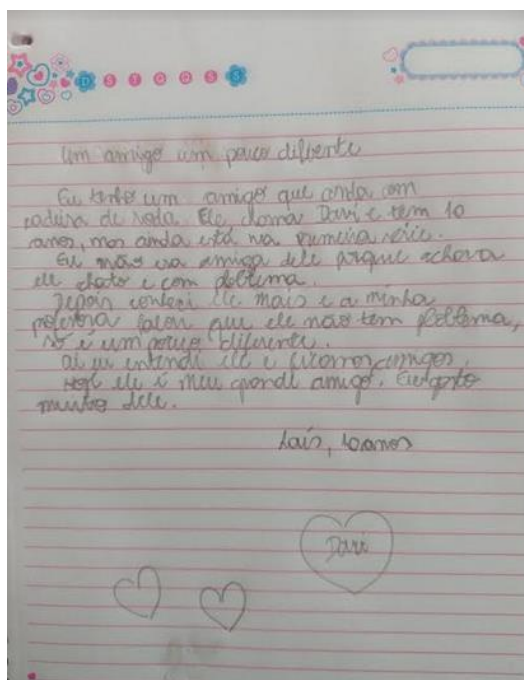 D S T Q Q S S
Um amigo um pouco diferente
Eu tenho um amigo que anda com
cadeira de roda. Ele chama Davi e tem 10
anos, mas ainda está na primeira série.
Eu não era amiga dele porque achava
ele chato e com poblema.
Depois conheci ele mais e a minha
pofessora falou que ele não tem poblema,
só é um pouco diferente.
ai eu entendi ele e ficamos amigos.
Hoje ele é meu grande amigo. Eu gosto
muito dele.
Laís, 10 anos
Davi